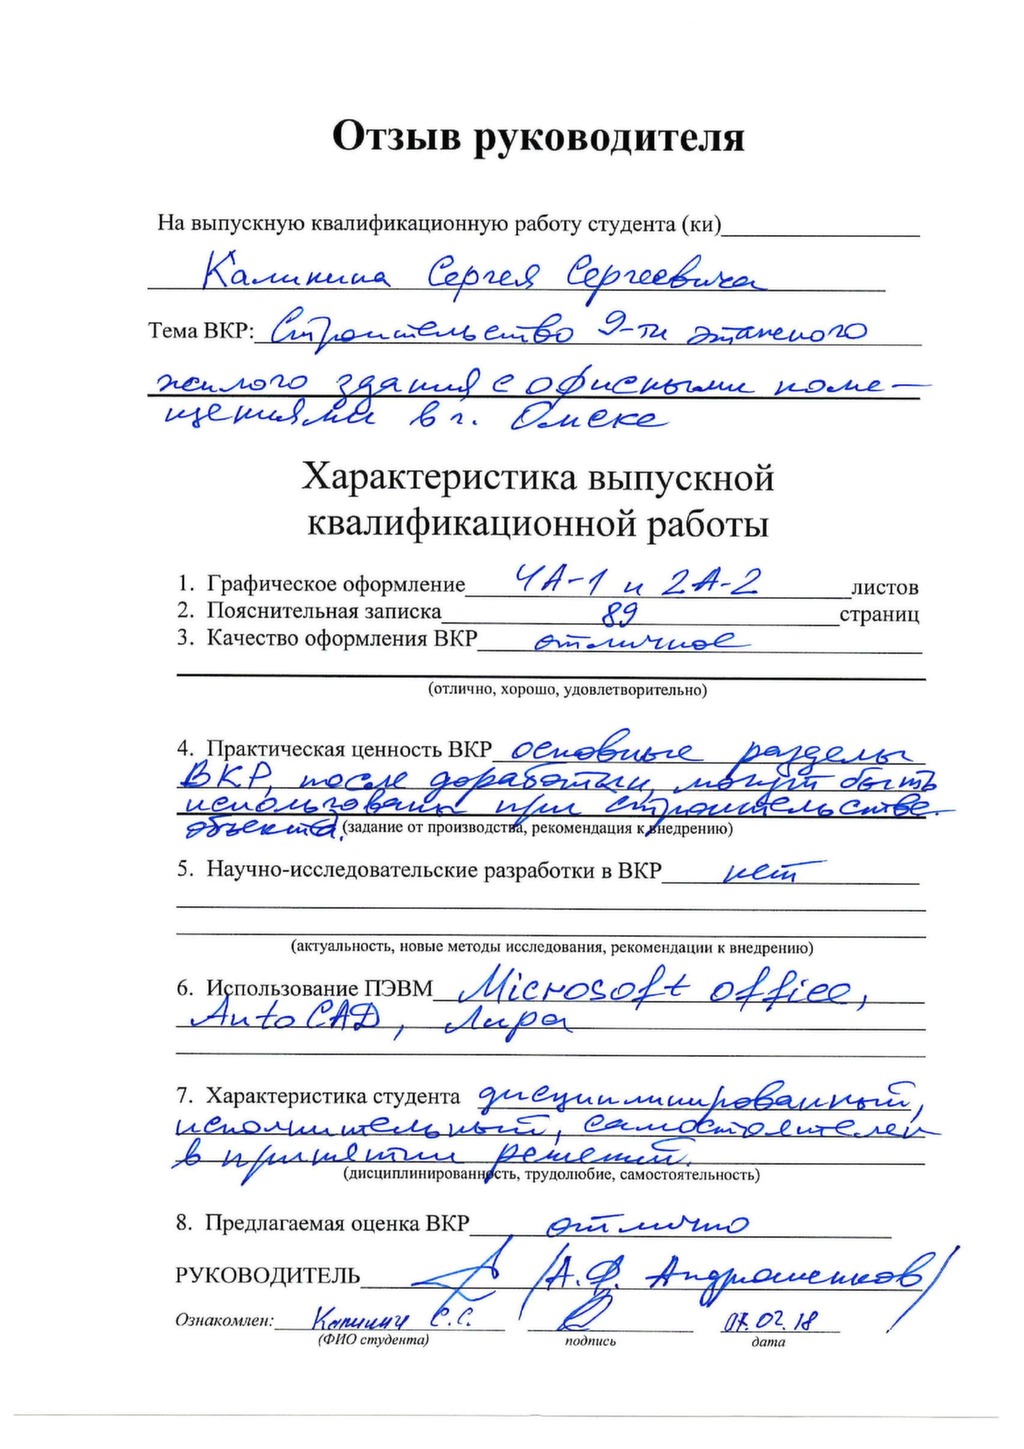 Отзыв руководителя
На выпускную квалификационную работу студента (ки)
Калинина Сергея Сергеевича
Тема ВКР: Строительство 9-ти этажного
жилого здания с офисными поме-
щениями в г. Омске
Характеристика выпускной
квалификационной работы
1. Графическое оформление 4А-1 и 2А-2 листов
2. Пояснительная записка 89 страниц
3. Качество оформления ВКР отличное
(отлично, хорошо, удовлетворительно)
4. Практическая ценность ВКР основные разделы
ВКР, после доработки, могут быть
использованы при строительстве
объекта. (задание от производства, рекомендация к внедрению)
5. Научно-исследовательские разработки в ВКР нет
(актуальность, новые методы исследования, рекомендации к внедрению)
6. Использование ПЭВМ Microsoft office,
AutoCAD, Лира
7. Характеристика студента дисциплинированный,
исполнительный, самостоятелен
в принятии решений.
(дисциплинированность, трудолюбие, самостоятельность)
8. Предлагаемая оценка ВКР отлично
РУКОВОДИТЕЛЬ /А.Ф. Андрюшенков/
Ознакомлен: Калинин С.С. 07.02.18
(ФИО студента) подпись дата